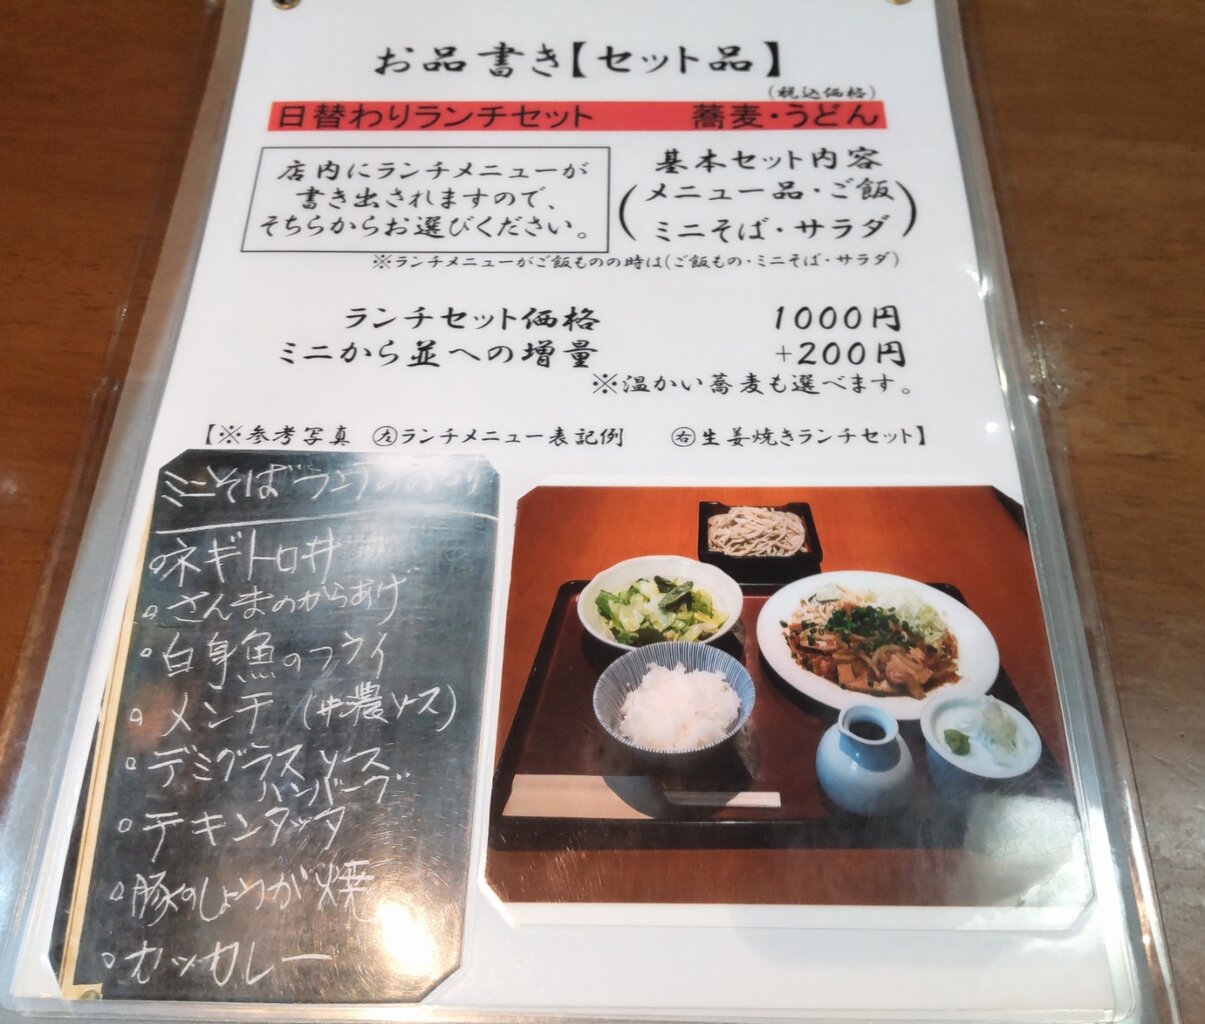 お品書き【セット品】
(税込価格)
日替わりランチセット 蕎麦・うどん
店内にランチメニューが
書き出されますので、
そちらからお選びください。
基本セット内容
(メニュー品・ご飯
ミニそば・サラダ)
※ランチメニューがご飯ものの時は(ご飯もの・ミニそば・サラダ)
ランチセット価格 1000円
ミニから並への増量 +200円
※温かい蕎麦も選べます。
【※参考写真 ㊧ランチメニュー表記例 ㊨生姜焼きランチセット】
ミニそばランチ
。ネギトロ丼
。さんまのからあげ
。白身魚のフライ
。メンチ(中濃ソース)
。デミグラスソース
ハンバーグ
。チキンタツタ
。豚のしょうが焼
。カツカレー